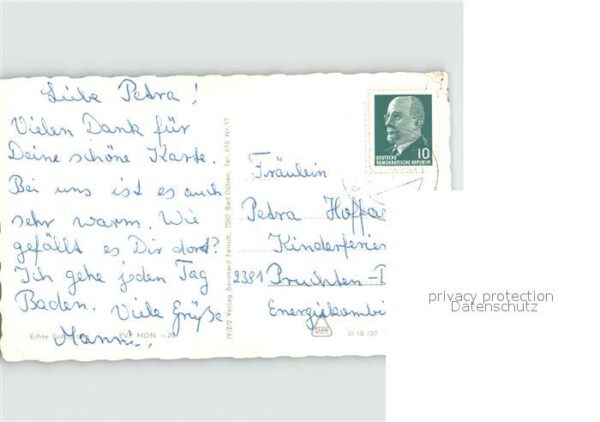 Liebe Petra!
Vielen Dank für
Deine schöne Karte.
Bei uns ist es auch
sehr warm. Wie
gefällt es Dir dort?
Ich gehe jeden Tag
Baden. Viele Grüße
Manni.
Echte
EVP MDN –.20
IV/2/2 Verlag Bernhard Fensch, 7282 Bad Düben, Tel. 610 Nr. 17
DEUTSCHE
DEMOKRATISCHE REPUBLIK
10
Fräulein
Petra Hoffa
Kinderferien
2381 Pruchten-
Energiekombi
III 18 197
privacy protection
Datenschutz